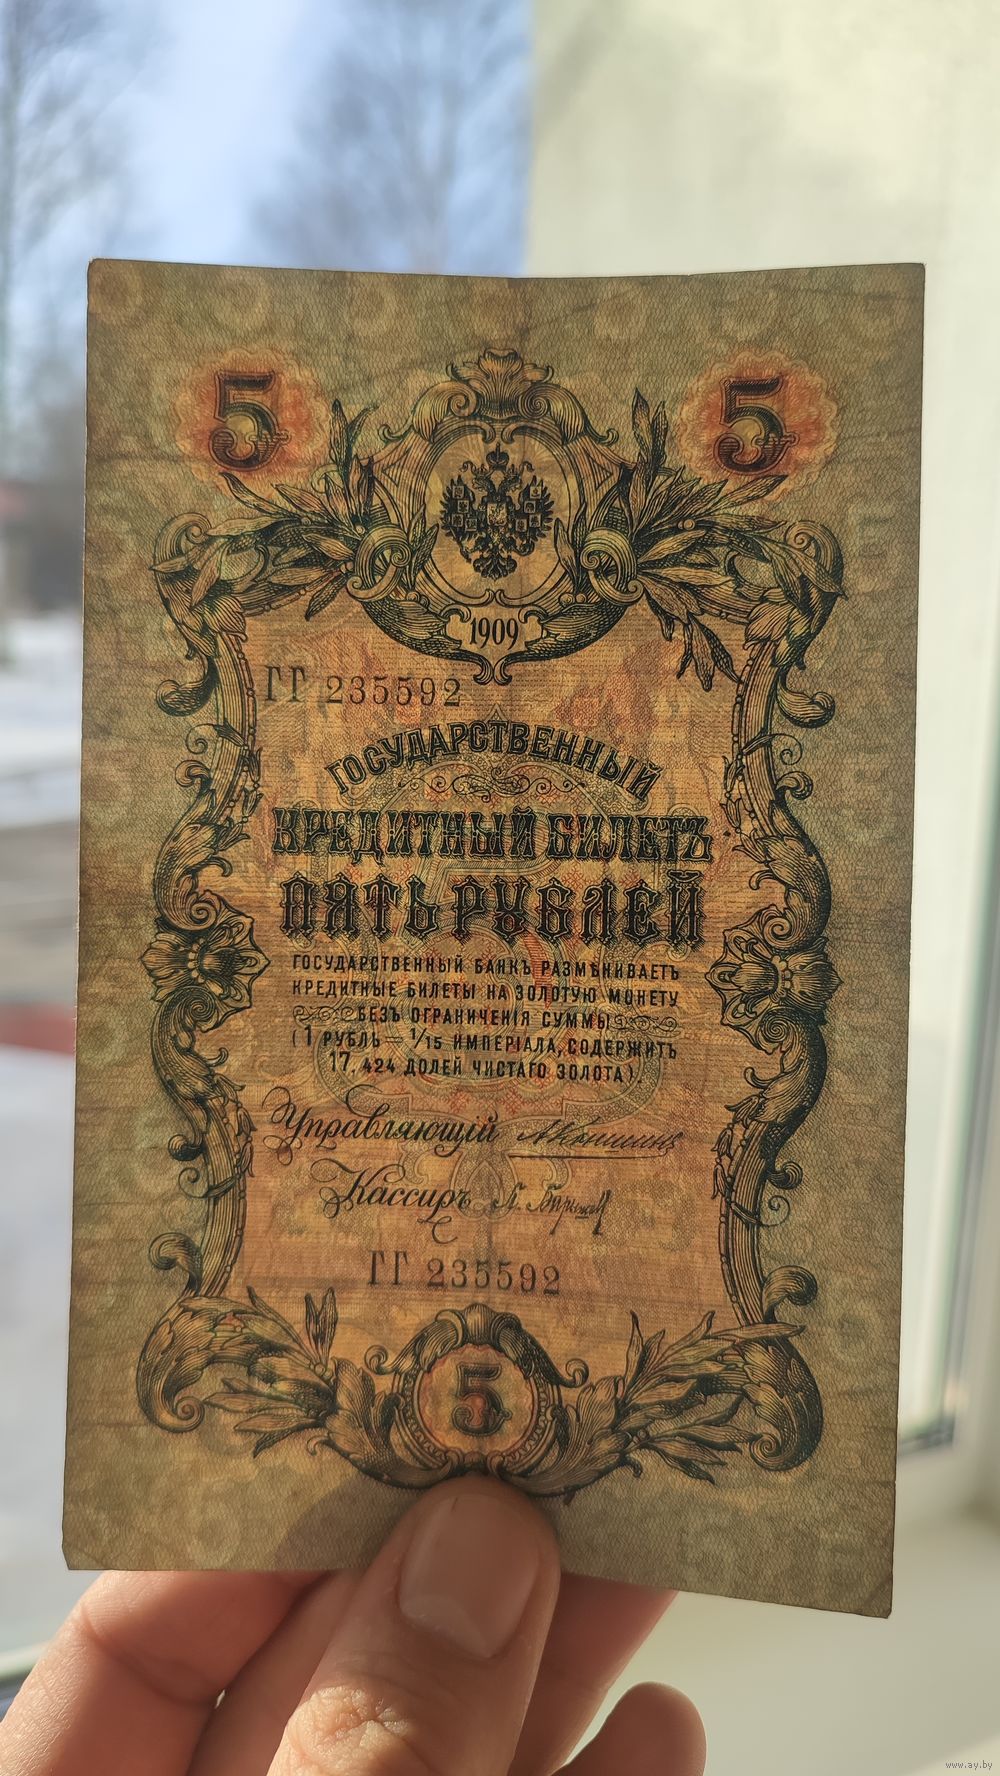 5 5
1909
ГГ 235592
ГОСУДАРСТВЕННЫЙ
КРЕДИТНЫЙ БИЛЕТЪ
ПЯТЬ РУБЛЕЙ
ГОСУДАРСТВЕННЫЙ БАНКЪ РАЗМѢНИВАЕТЪ
КРЕДИТНЫЕ БИЛЕТЫ НА ЗОЛОТУЮ МОНЕТУ
БЕЗЪ ОГРАНИЧЕНІЯ СУММЫ
(1 РУБЛЬ = 1/15 ИМПЕРІАЛА, СОДЕРЖИТЪ
17,424 ДОЛЕЙ ЧИСТАГО ЗОЛОТА).
Управляющій АКоншинъ
Кассиръ
ГГ 235592
5
www.ay.by